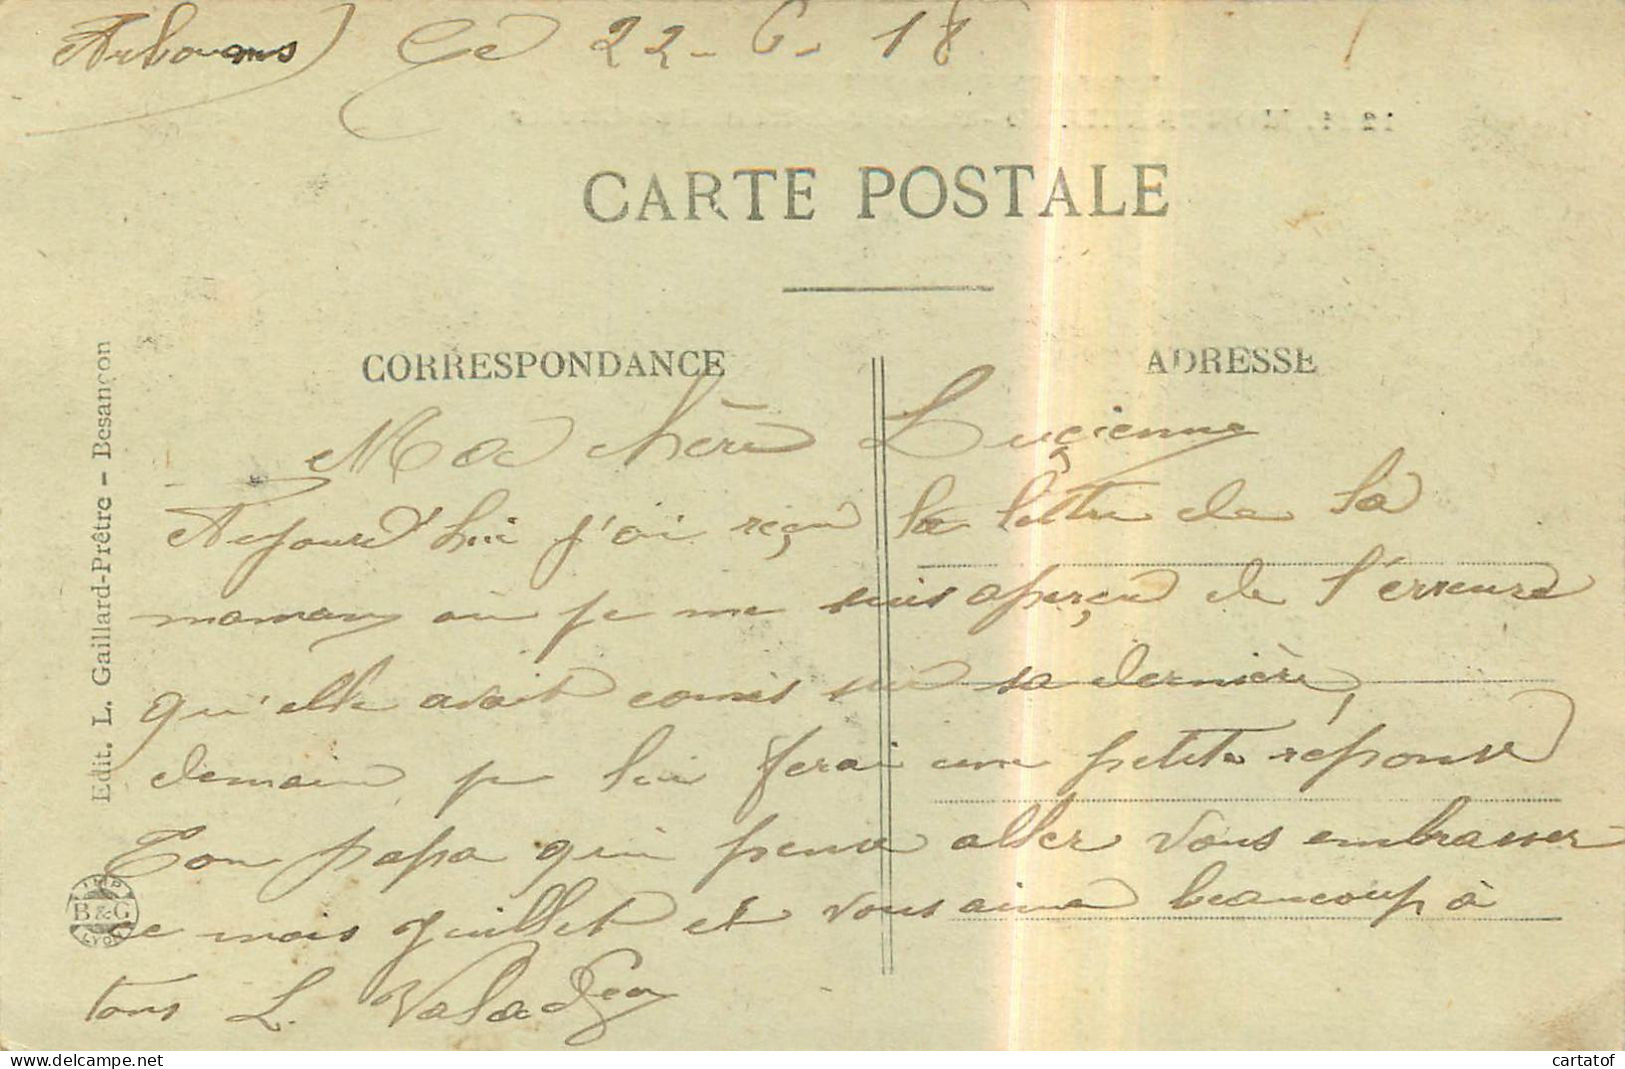 Arbouans Ce 22-6-18
CARTE POSTALE
CORRESPONDANCE
ADRESSE
Edit. L. Gaillard-Prêtre - Besançon
Ma chère Luçienne
Aujourd'hui j'ai reçu la lettre de la
maman où je me suis aperçu de l'erreure
qu'elle avait comis sur sa dernière,
demain je lui ferai une petite réponse
Ton papa qui pense aller vous embrasser
ce mois Juillet et vous aime beaucoup à
tous L. Valad
IMP
B&G
LYON
delcampe.net
cartatof